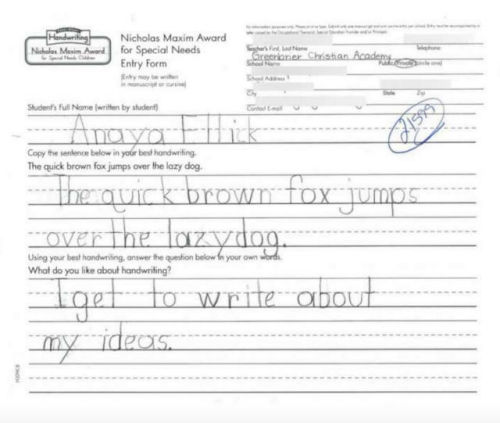 Handwriting
Nicholas Maxim Award
for Special Needs Children
Nicholas Maxim Award
for Special Needs
Entry Form
(Entry may be written
in manuscript or cursive)
Teacher's First, Last Name Telephone
Greenbrier Christian Academy
School Name Public/Private (circle one)
School Address
City State Zip
Contact E-mail
21599
Student's Full Name (written by student)
Anaya Ellick
Copy the sentence below in your best handwriting.
The quick brown fox jumps over the lazy dog.
The quick brown fox jumps
over the lazy dog.
Using your best handwriting, answer the question below in your own words.
What do you like about handwriting?
I get to write about
my ideas.